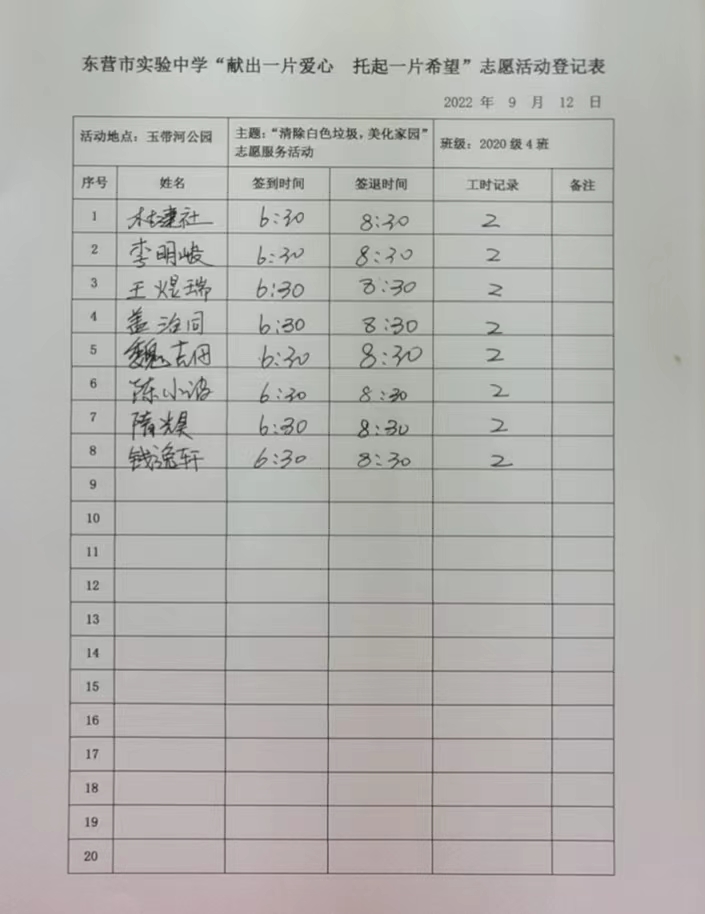 东营市实验中学“献出一片爱心 托起一片希望”志愿活动登记表
2022 年 9 月 12 日
活动地点：玉带河公园 主题：“清除白色垃圾，美化家园”志愿服务活动 班级：2020级4班
序号 姓名 签到时间 签退时间 工时记录 备注
1 6:30 8:30 2
2 李明峻 6:30 8:30 2
3 王煜瑞 6:30 8:30 2
4 盖治同 6:30 8:30 2
5 魏吉伟 6:30 8:30 2
6 陈小波 6:30 8:30 2
7 隋昊 6:30 8:30 2
8 钱逸轩 6:30 8:30 2
9
10
11
12
13
14
15
16
17
18
19
20